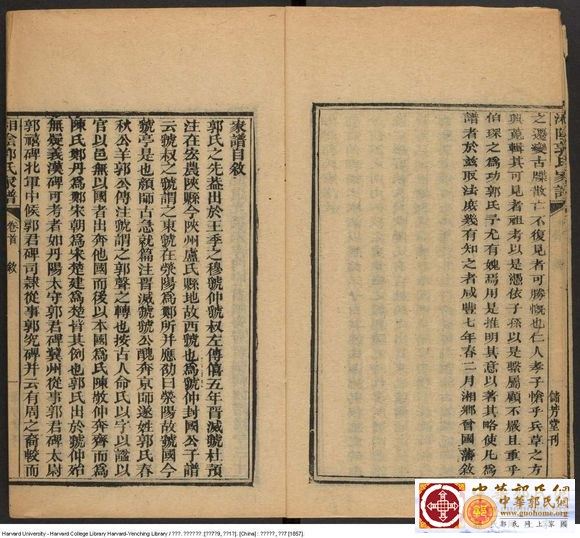 湘陰郭氏家譜
之遷變古牒散亡不復見者可勝慨也仁人孝子愴乎兵草之方
興蒐輯其可見者祖考以是憑依子孫以是繫屬顧不嚴且重乎
伯琛之為功郭氏予尤有媿焉用是推明其意以著其略使凡為
譜者於茲取法庶幾有知之者咸豐七年春二月湘鄉曾國藩敘
儲芳堂刊
家譜自敘
郭氏之先蓋出於王季之穆虢仲虢叔左傳僖五年晉滅虢杜預
注在宏農陝縣今陝州盧氏縣地故西虢也為虢仲封國公子譜
云虢叔之虢謂之東虢在滎陽為鄭所并應劭曰滎陽故虢國今
虢亭是也顏師古急就篇注晉滅虢虢公醜奔京師遂姓郭氏春
秋公羊郭公傳注虢謂之郭聲之轉也按古人命氏以字以謚以
官以邑無以國者出奔他國而後以本國為氏陳敬仲奔齊而為
陳氏鄭丹為鄭宋朝為宋楚建為楚皆其例也郭氏出於虢仲殆
無疑義漢碑可考者如丹陽太守郭君碑冀州從事郭君碑太尉
郭禧碑北軍中候郭君碑司隸從事郭究碑并云有周之裔較而
湘陰郭氏家譜 卷首 敘
中華郭氏網
www.guohome.org
郭氏网上家園
Harvard University - Harvard College Library Harvard-Yenching Library / ???. ??????. [????9, ??1?]. [China] : ?????, ??7 [1857].